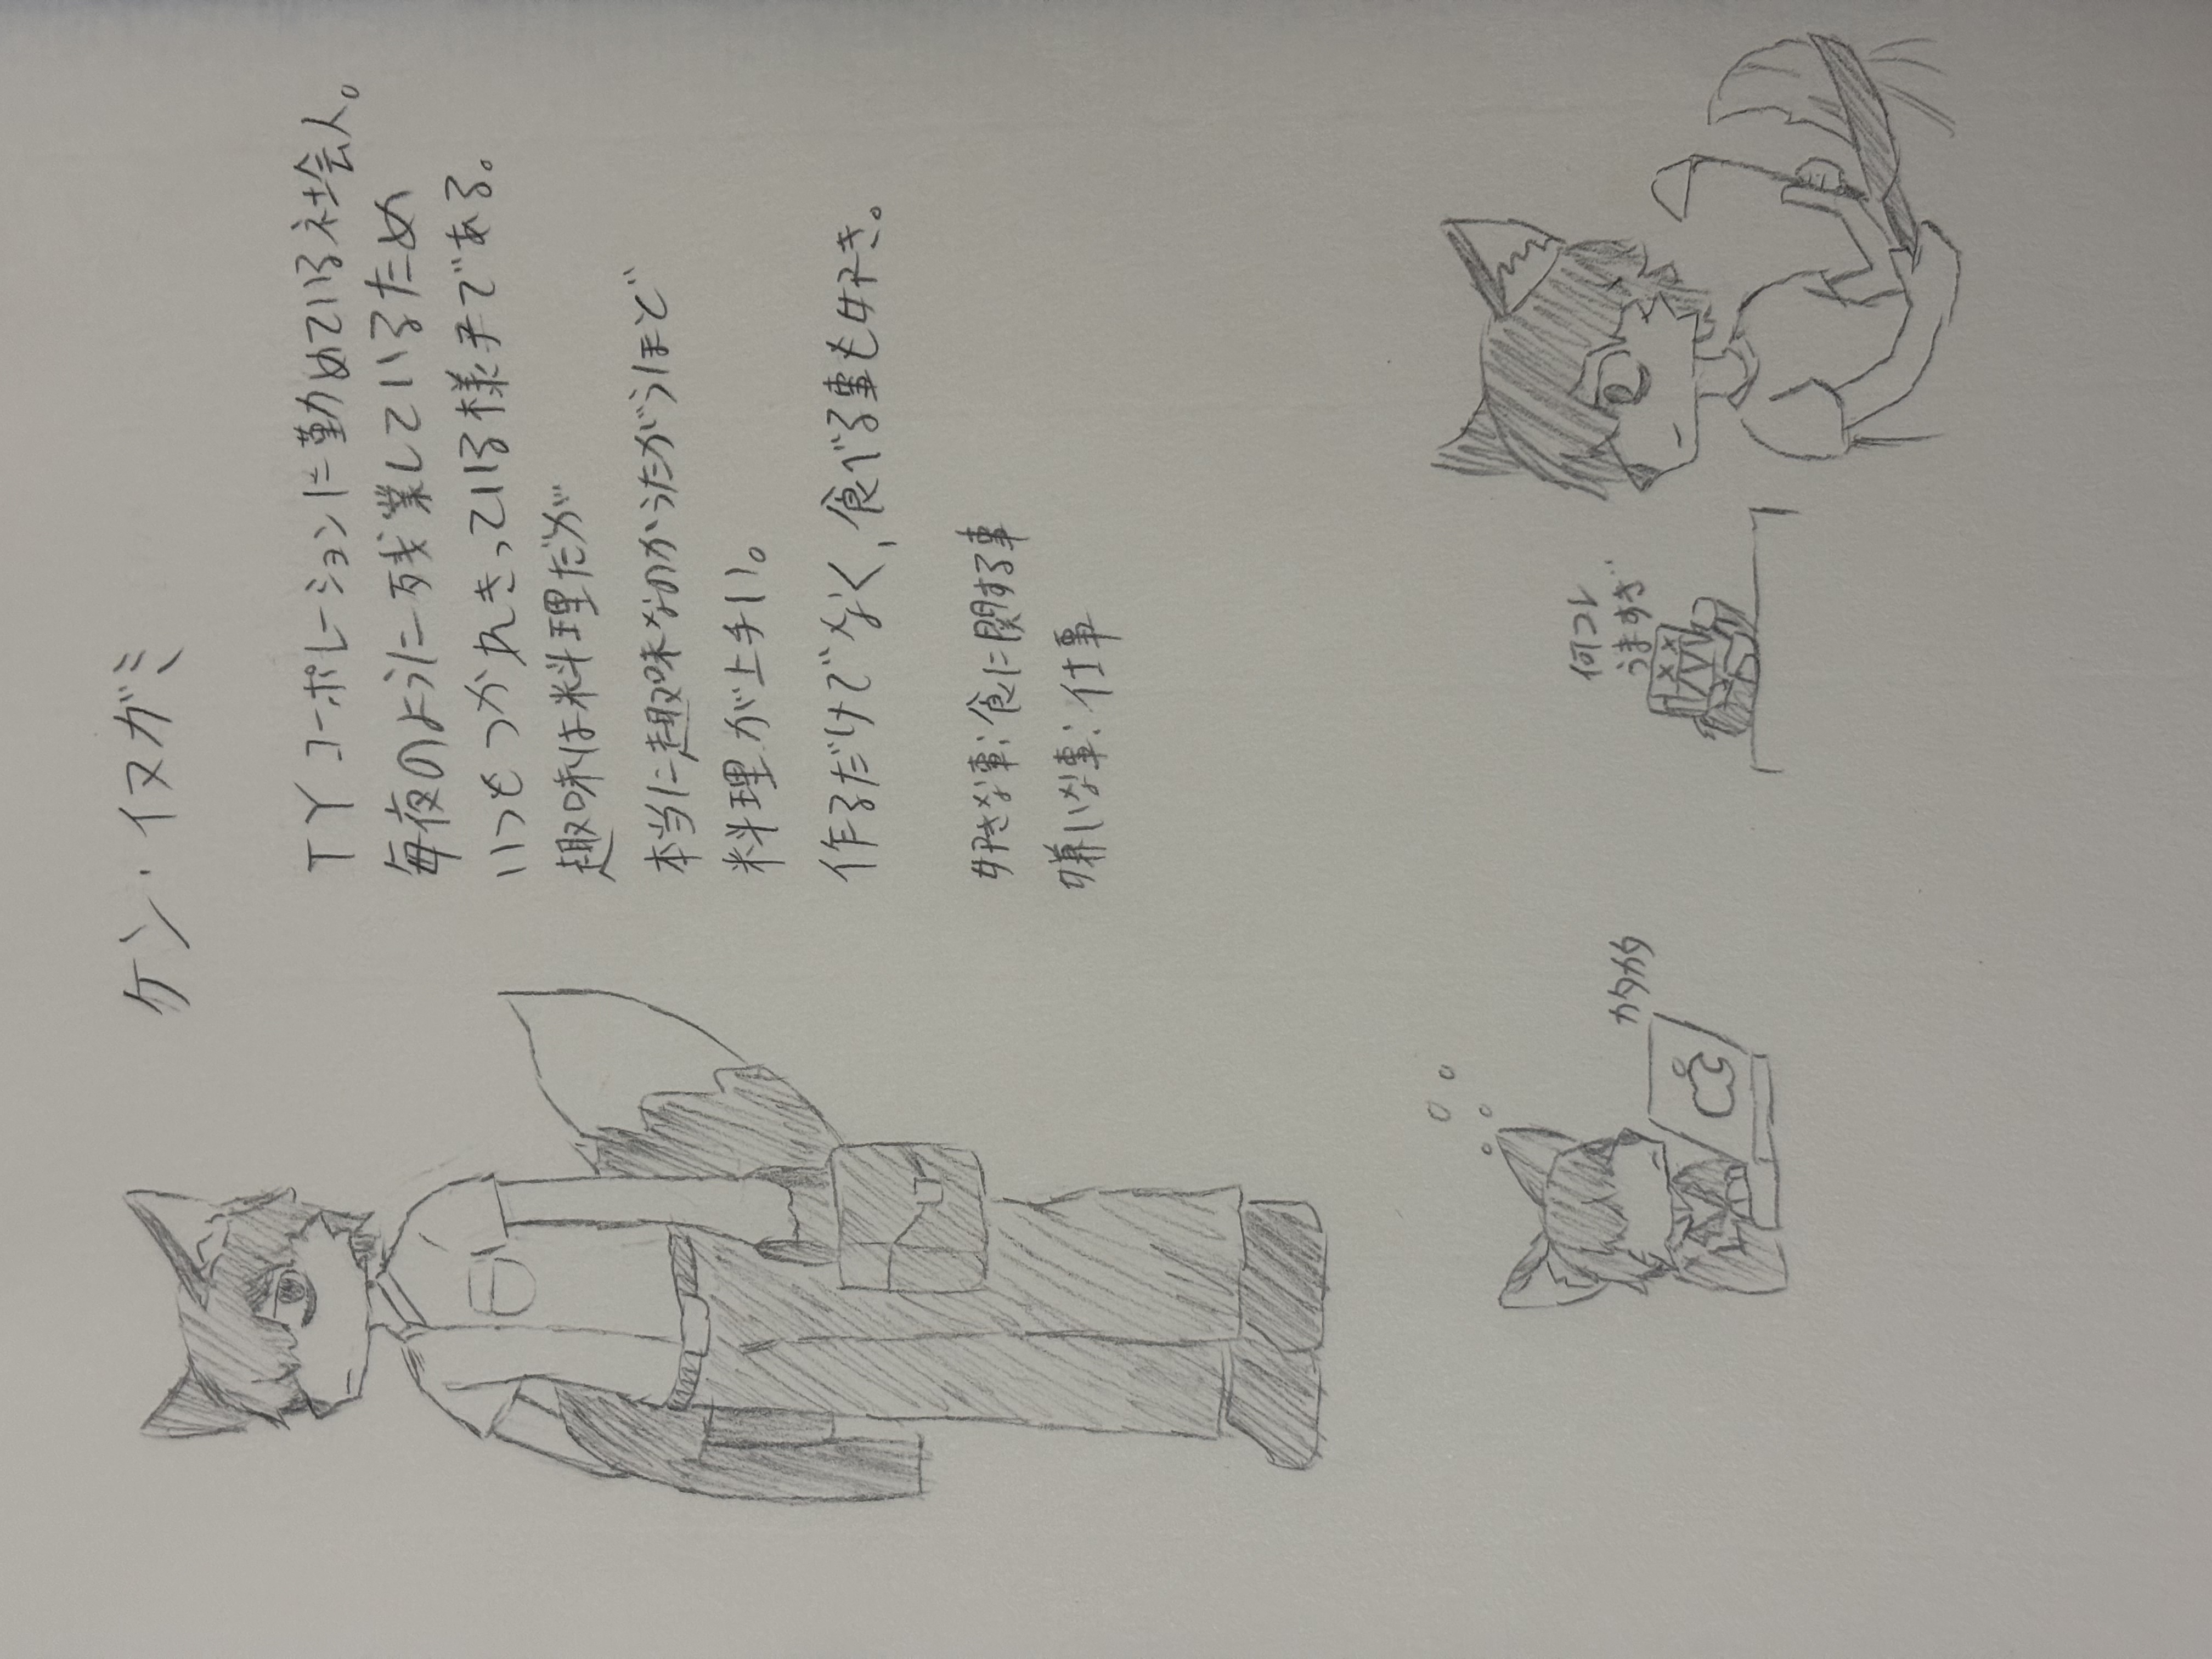 ケン・イヌガミ
TYコーポレーションに勤めている社会人。
毎夜のように残業しているため
いつもつかれきっている様子である。
趣味は料理だが
本当に趣味なのかうたがうほど
料理が上手い。
作るだけでなく、食べる事も好き。
好きな事:食に関する事
嫌いな事:仕事
カタカタ
何コレ
うますぎ